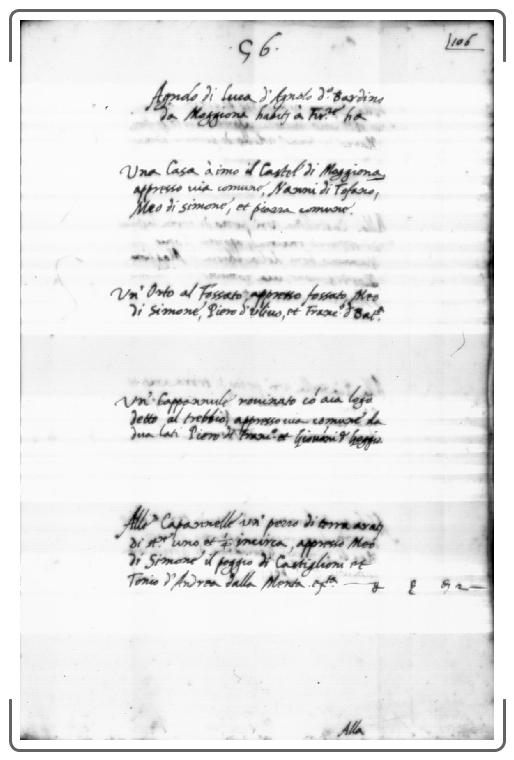 ·56·
106
Agnolo di Luca d'Agnolo d.° Bardino
da Moggiona ha
Una Casa à imo il Castel di Moggiona
appresso via comune, Nanni di Tofano,
Meo di Simone, et piazza comune.
Un' Orto al Fossato appresso fossato, Meo
di Simone, Piero d' et Franc.° d'
Un' rovinato cö aia logo
detto al trebbio, appresso via comune da
dua lati Piero di Franc.° et
Alle Capannelle un' pezzo di terra
di uno et ½ incirca, appresso Meo
di Simone il poggio di Castiglioni et
Tonio d'Andrea dalla Menta
Alla